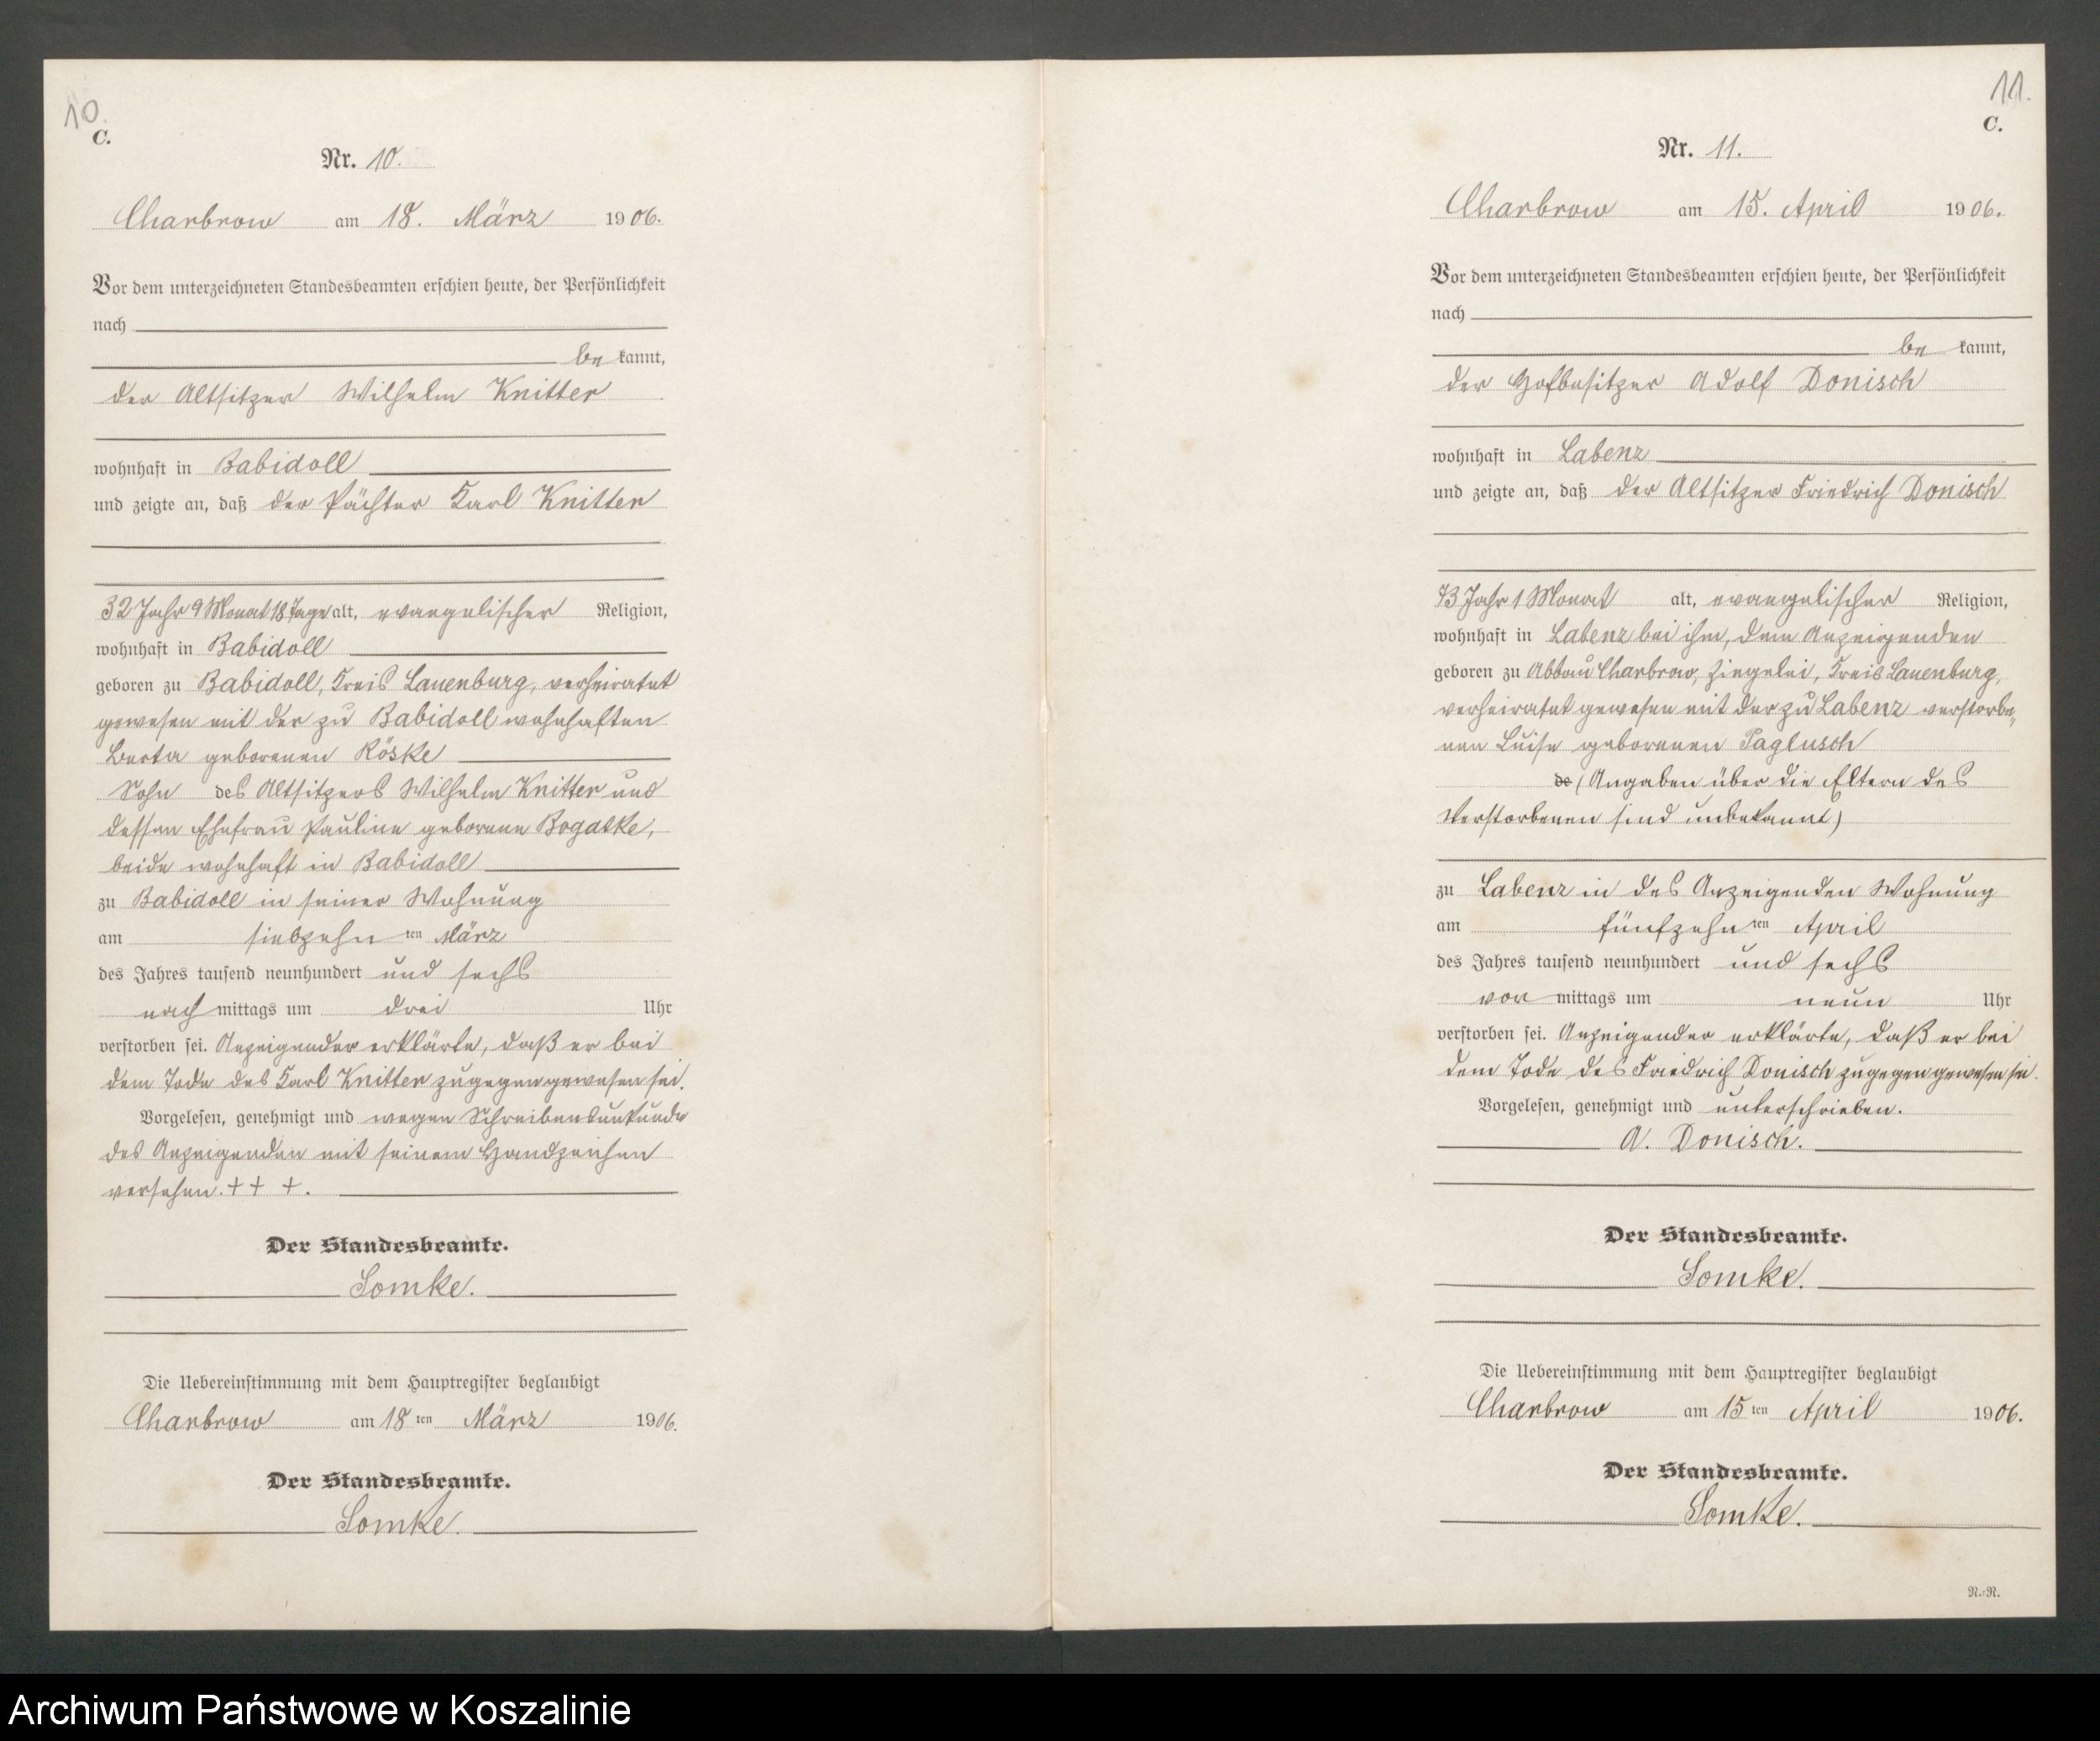 10.
C.
Nr. 10.
Charbrow am 18. März 1906.
Vor dem unterzeichneten Standesbeamten erschien heute, der Persönlichkeit
nach
be kannt,
der Altsitzer Wilhelm Knitter
wohnhaft in Babidoll
und zeigte an, daß der Pächter Karl Knitter
32 Jahr 9 Monat 18 Tage alt, evangelischer Religion,
wohnhaft in Babidoll
geboren zu Babidoll, Kreis Lauenburg, verheiratet
gewesen mit der zu Babidoll wohnhaften
Berta geborenen Röske
Sohn des Altsitzers Wilhelm Knitter und
dessen Ehefrau Pauline geborene Bogatke,
beide wohnhaft in Babidoll
zu Babidoll in seiner Wohnung
am siebzehn ten März
des Jahres tausend neunhundert und sechs
nach mittags um drei Uhr
verstorben sei. Anzeigender erklärte, daß er bei
dem Tode des Karl Knitter zugegen gewesen sei.
Vorgelesen, genehmigt und wegen Schreibensunkunde
des Anzeigenden mit seinem Handzeichen
versehen. + + +.
Der Standesbeamte.
Lomke.
Die Uebereinstimmung mit dem Hauptregister beglaubigt
Charbrow am 18 ten März 1906.
Der Standesbeamte.
Lomke.
11.
C.
Nr. 11.
Charbrow am 15. April 1906.
Vor dem unterzeichneten Standesbeamten erschien heute, der Persönlichkeit
nach
be kannt,
der Hofbesitzer Adolf Donisch
wohnhaft in Labenz
und zeigte an, daß der Altsitzer Friedrich Donisch
73 Jahr 1 Monat alt, evangelischer Religion,
wohnhaft in Labenz bei ihm, dem Anzeigenden
geboren zu Abbau Charbrow, Ziegelei, Kreis Lauenburg,
verheiratet gewesen mit der zu Labenz verstorbe„
nen Luise geborenen Paglusch
de (Angaben über die Eltern des
Verstorbenen sind unbekannt)
zu Labenz in des Anzeigenden Wohnung
am fünfzehn ten April
des Jahres tausend neunhundert und sechs
vor mittags um neun Uhr
verstorben sei. Anzeigender erklärte, daß er bei
dem Tode des Friedrich Donisch zugegen gewesen sei.
Vorgelesen, genehmigt und unterschrieben.
A. Donisch.
Der Standesbeamte.
Lomke.
Die Uebereinstimmung mit dem Hauptregister beglaubigt
Charbrow am 15 ten April 1906.
Der Standesbeamte.
Lomke.
N.-N.
Archiwum Państwowe w Koszalinie